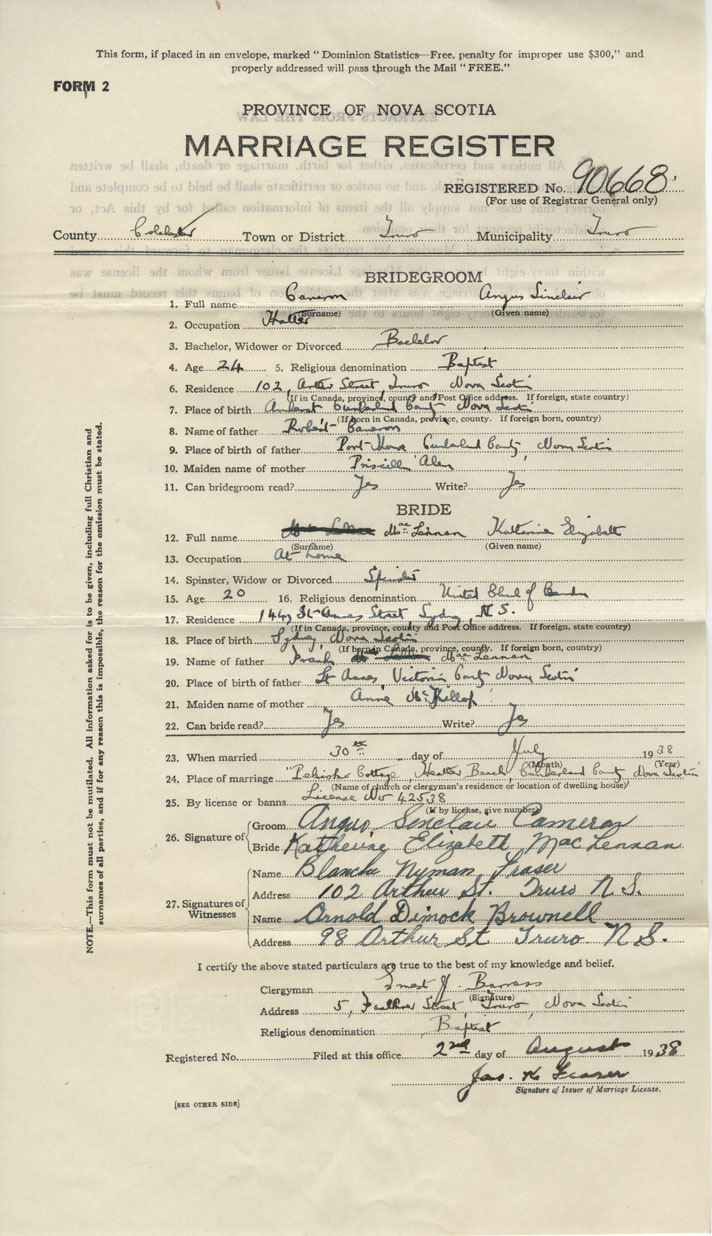 This form, if placed in an envelope, marked "Dominion Statistics—Free, penalty for improper use $300," and
properly addressed will pass through the Mail "FREE."
FORM 2
PROVINCE OF NOVA SCOTIA
MARRIAGE REGISTER
REGISTERED No. 90668
(For use of Registrar General only)
County Colchester Town or District Truro Municipality Truro
BRIDEGROOM
1. Full name Cameron Angus Sinclair
(Surname) (Given name)
2. Occupation
3. Bachelor, Widower or Divorced Bachelor
4. Age 24 5. Religious denomination Baptist
6. Residence 102, Arthur Street, Truro Nova Scotia
(If in Canada, province, county and Post Office address. If foreign, state country)
7. Place of birth Amherst Cumberland County Nova Scotia
(If born in Canada, province, county. If foreign born, country)
8. Name of father Robert Cameron
9. Place of father Port Howe Cumberland County Nova Scotia
10. Maiden name of mother Priscilla Allen
11. Can bridegroom read? Yes Write? Yes
BRIDE
12. Full name MacLennan Katherine Elizabeth
(Surname) (Given name)
13. Occupation At home
14. Spinster, Widow or Divorced Spinster
15. Age 20 16. Religious denomination United Church of Canada
17. Residence Street Sydney, N.S.
(If in Canada, province, county and Post Office address. If foreign, state country)
18. Place of birth Sydney, Nova Scotia
(If born in Canada, province, county. If foreign born, country)
19. Name of father Frank MacLennan
20. Place of birth of father St Anns, Victoria County Nova Scotia
21. Maiden name of mother Anna McKillop
22. Can bride read? Yes Write? Yes
23. When married 30th day of July 1938
(Month) (Year)
24. Place of marriage Cottage, Heather Beach Cumberland County, Nova Scotia
(Name of church or clergyman's residence or location of dwelling house)
25. By license or banns License No 42538
(If by license, give number)
26. Signature of
Groom Angus Sinclair Cameron
Bride Katherine Elizabeth MacLennan
27. Signatures of Witnesses
Name Blanche Nyman Fraser
Address 102 Arthur St. Truro N.S.
Name Arnold Dimock Brownell
Address 98 Arthur St Truro N.S.
I certify the above stated particulars are true to the best of my knowledge and belief.
Clergyman Ernest J. Barrass
(Signature)
Address 5, Faulkner Street, Truro, Nova Scotia
Religious denomination Baptist
Registered No. Filed at this office 2nd day of August 1938
Jas. K Fraser
Signature of Issuer of Marriage License.
[SEE OTHER SIDE]
NOTE.—This form must not be mutilated. All information asked for is to be given, including full Christian and
surnames of all parties, and if for any reason this is impossible, the reason for the omission must be stated.